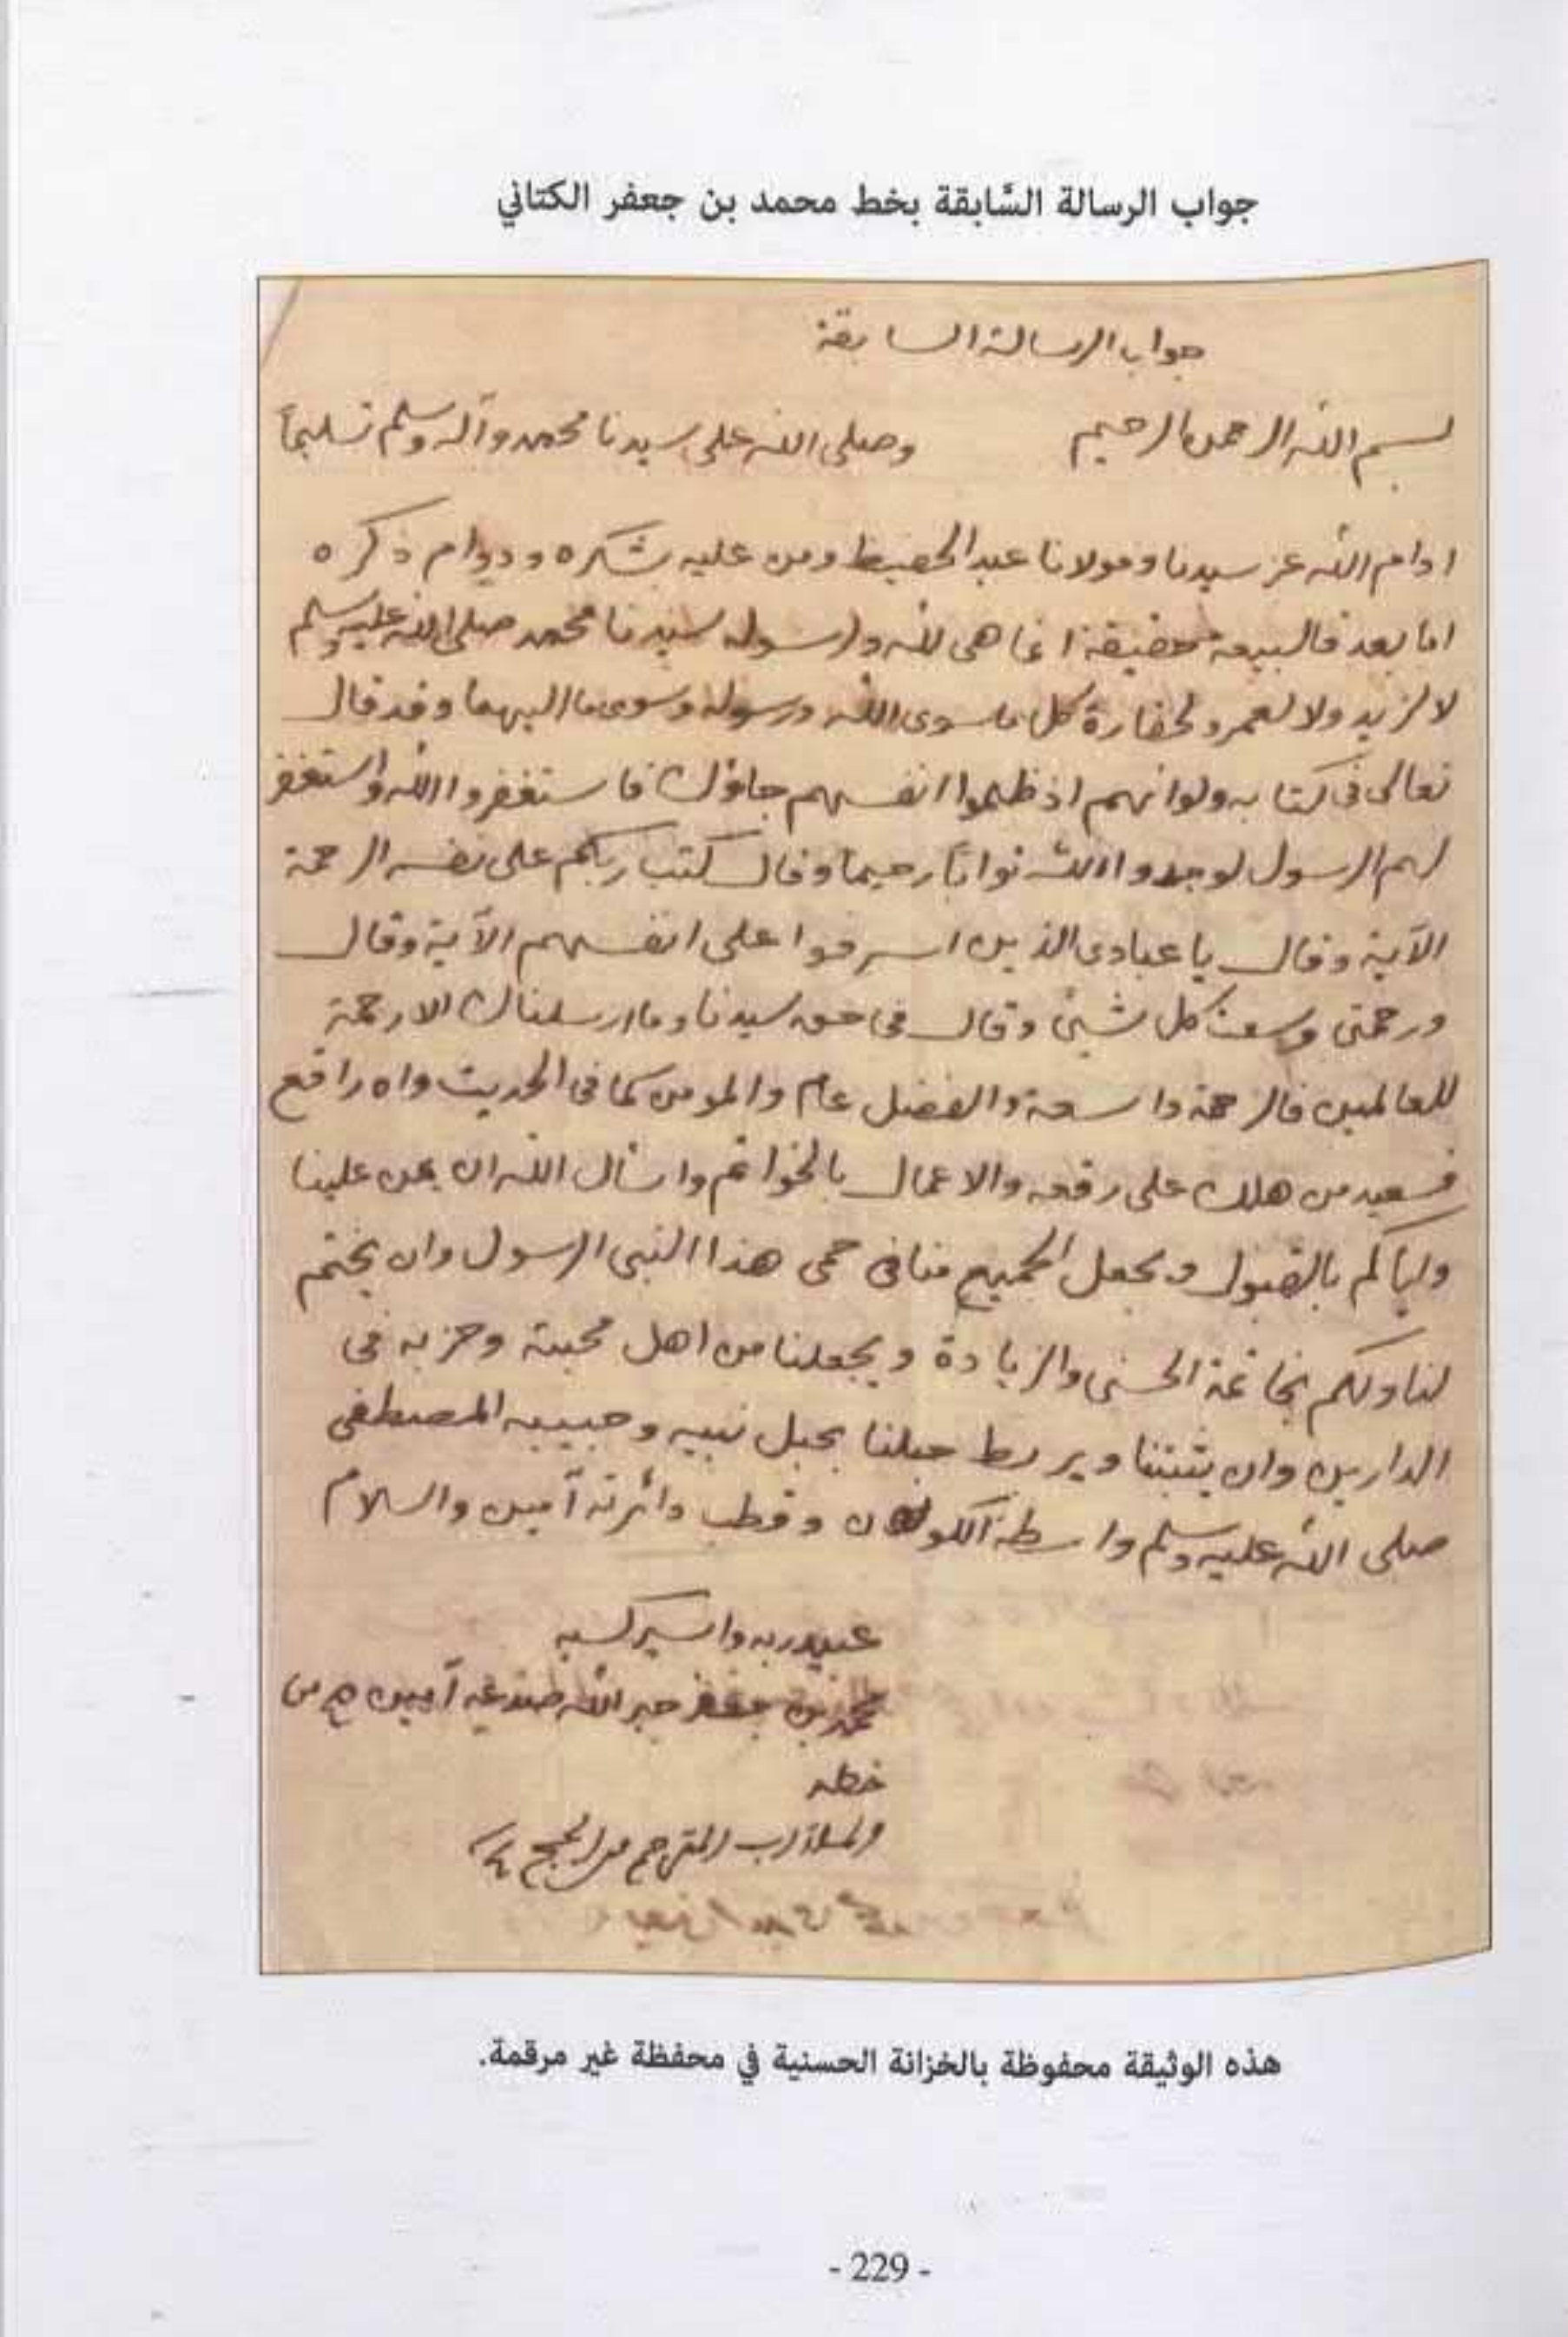 جواب الرسالة السّابقة بخط محمد بن جعفر الكتاني
جواب الرسالة السابقة
بسم الله الرحمن الرحيم وصلى الله على سيدنا محمد وآله وسلم تسليماً
ادام الله عز سيدنا ومولانا عبد الحفيظ ومن عليه بشكره ودوام ذكره
اما بعد فالبيعة حقيقة انما هى لله ولرسوله سيدنا محمد صلى الله عليه وسلم
لا لزيد ولا لعمرو لحقارة كل ما سوى الله ورسوله وسوى ما اليهما وقد قال
تعالى فى كتابه ولو انهم اذ ظلموا انفسهم جاؤك فاستغفروا الله واستغفر
لهم الرسول لوجدوا الله تواباً رحيما وقال كتب ربكم على نفسه الرحمة
الآية وقال يا عبادى الذين اسرفوا على انفسهم الآية وقال
ورحمتى وسعت كل شيئ وقال فى حق سيدنا وما ارسلناك الا رحمة
للعالمين فالرحمة واسعة والفضل عام والمومن كما فى الحديث واه راقع
فسعيد من هلك على رقعه والاعمال بالخواتم واسأل الله ان يمن علينا
واياكم بالقبول ويجعل الجميع منا فى حمى هذا النبى الرسول وان يختم
لنا ولكم بخاتمة الحسنى والزيادة ويجعلنا من اهل محبته وحزبه فى
الدارين وان يثبتنا ويربط حبلنا بحبل نبيه وحبيبه المصطفى
صلى الله عليه وسلم واسطة الكون وقطب دائرته آمين والسلام
عبيد ربه واسير كسبه
محمد بن جعفر خير الله ضد غيه آمين من
خطه
هذه الوثيقة محفوظة بالخزانة الحسنية في محفظة غير مرقمة.
- 229 -